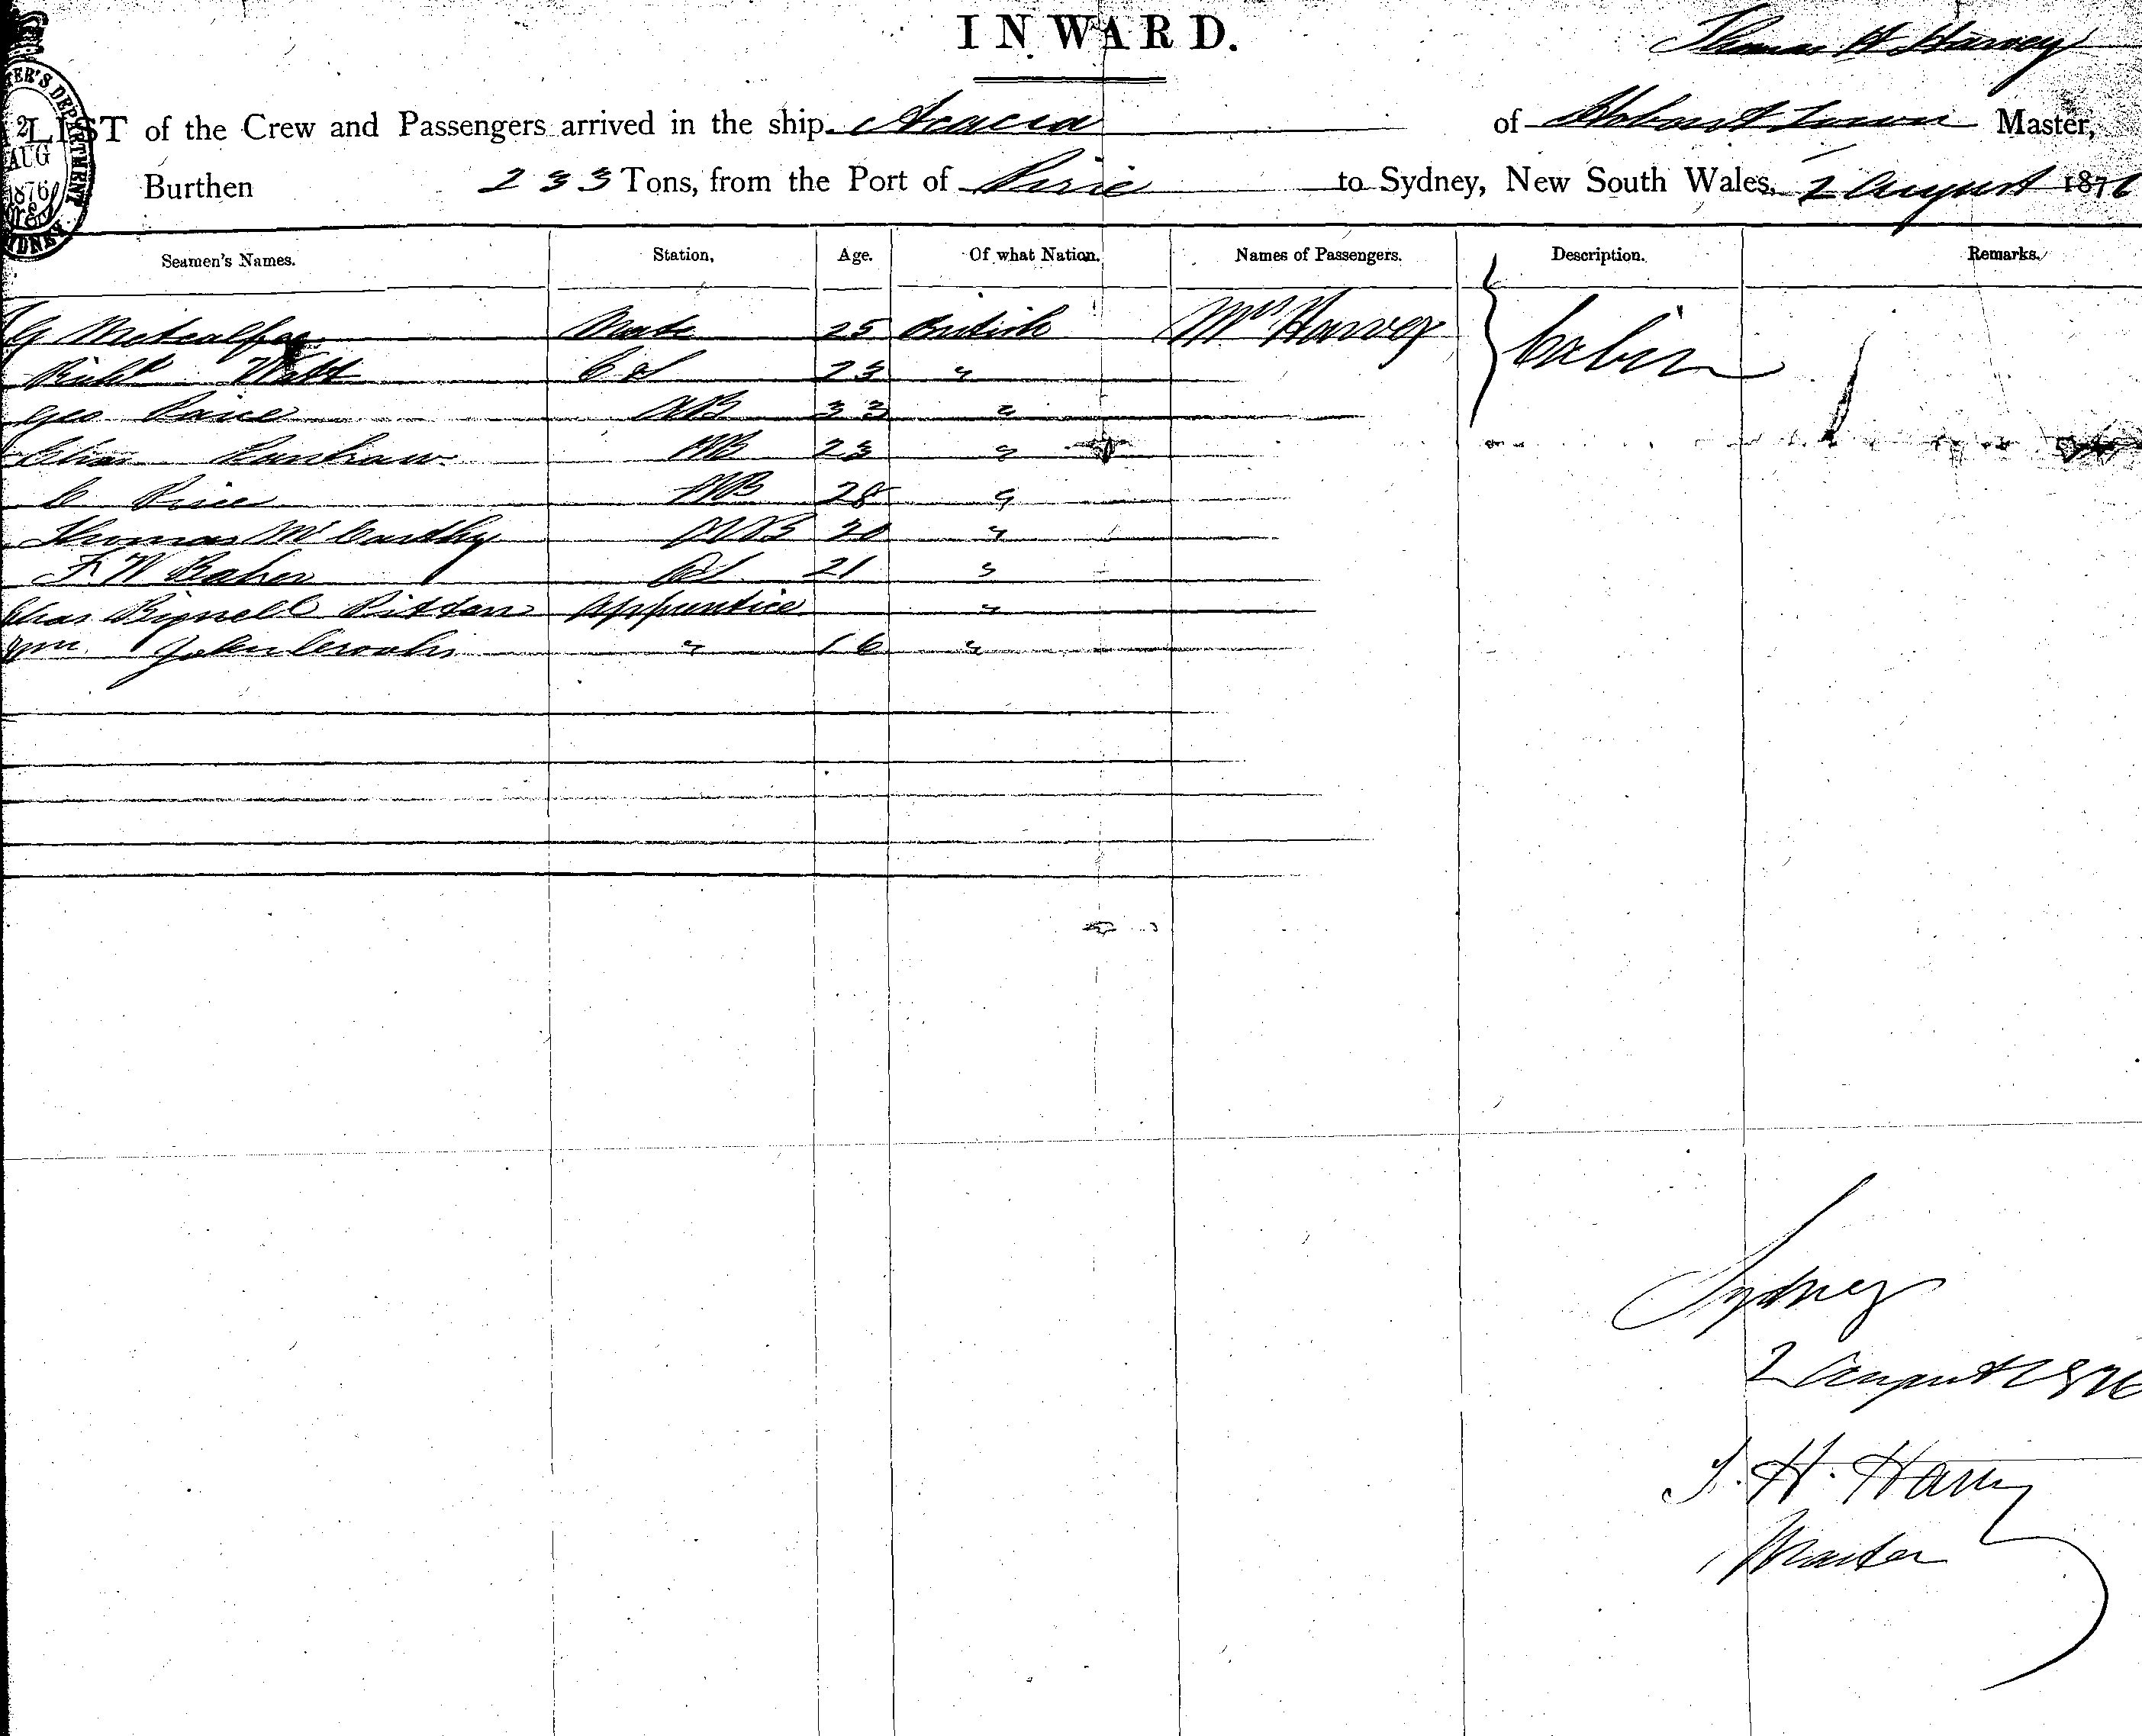 INWARD.
Thomas H Harvey
LIST of the Crew and Passengers arrived in the ship Acacia of Hobart Town Master,
Burthen 233 Tons, from the Port of Pirie to Sydney, New South Wales, 2 August 1876
2 AUG 1876 SYDNEY
Seamen's Names. Station, Age. Of what Nation. Names of Passengers. Description. Remarks.
G Metcalfe Mate 25 British Mrs Harvey Cabin
Richd Watt 23 "
Geo AB 33 "
Chas AB 23 "
C AB 28 "
Thomas McCarthy AB 20 "
F W Baker 21 "
Chas Bignell Apprentice "
Wm John " 16 "
Sydney
2 August 1876
T. H. Harvey
Master